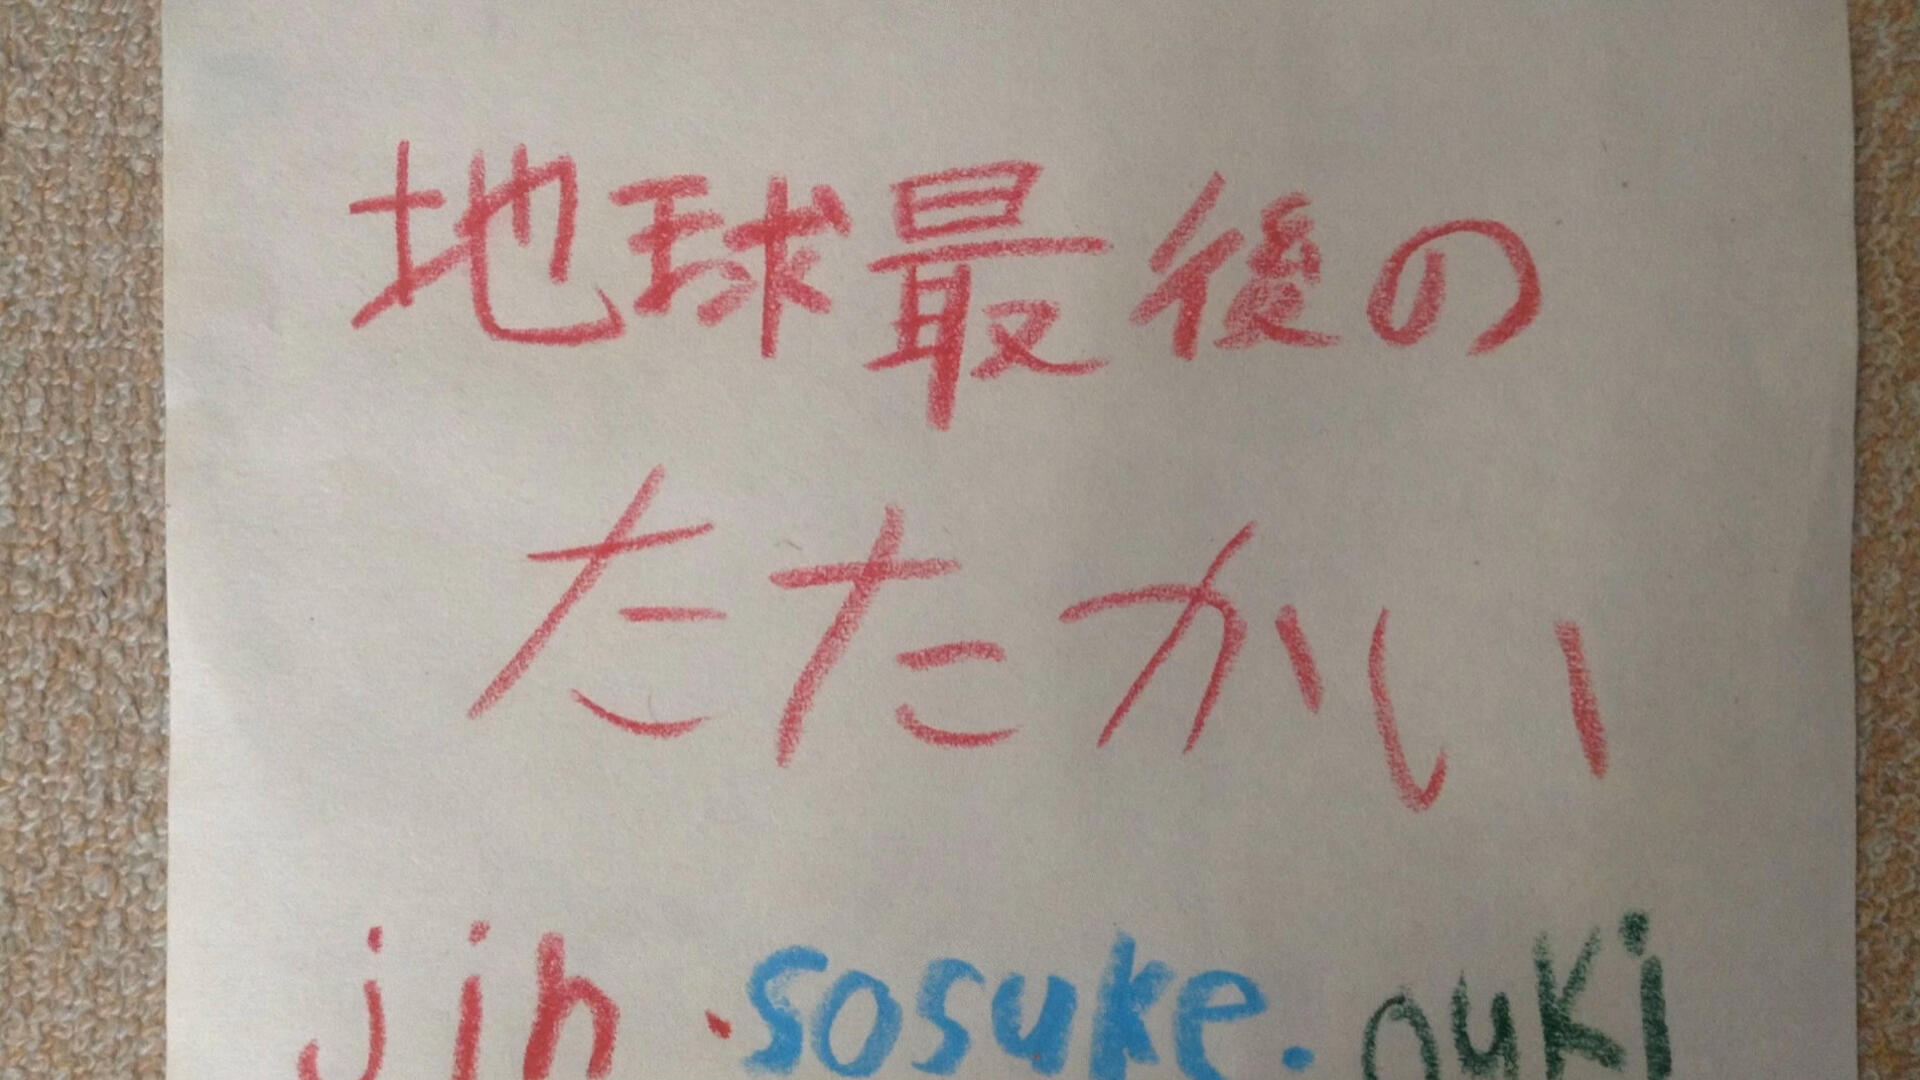 地球最後の
たたかい
jin・sosuke・ouki